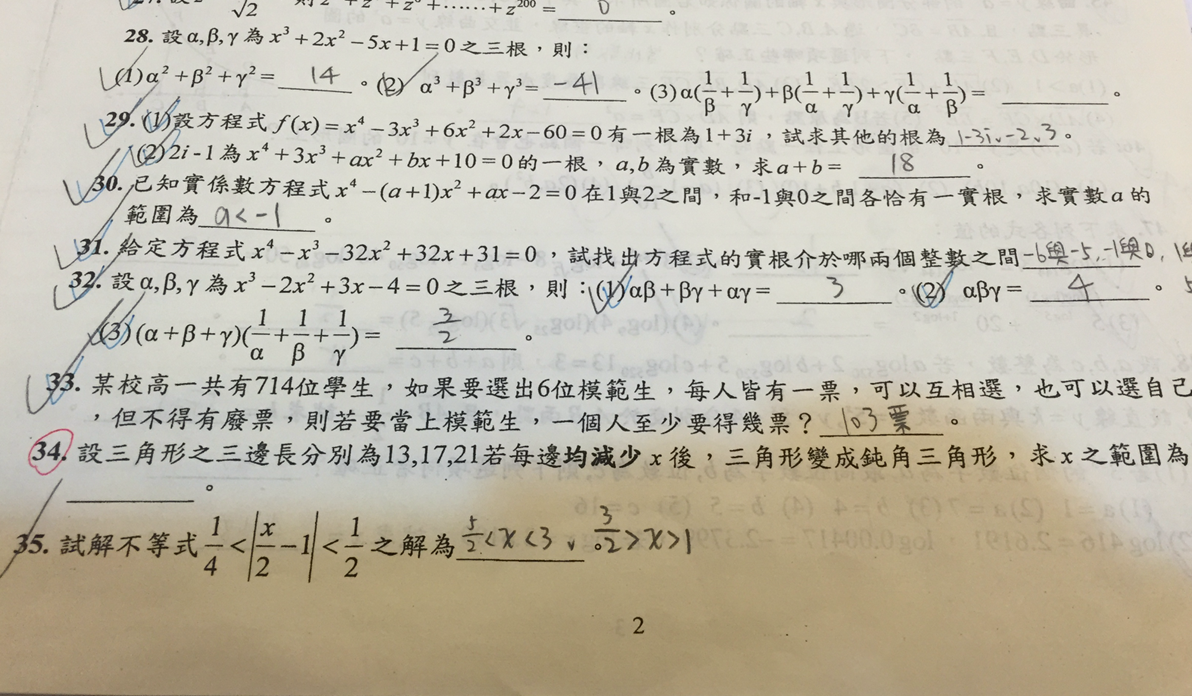 √2 z²⁰⁰ = 0 。
28. 設α,β,γ為x³+2x²−5x+1=0之三根，則：
(1)α²+β²+γ²= 14 。(2) α³+β³+γ³= -41 。(3)α(1/β+1/γ)+β(1/α+1/γ)+γ(1/α+1/β)= ________ 。
29. (1)設方程式f(x)=x⁴−3x³+6x²+2x−60=0有一根為1+3i，試求其他的根為 1-3i、-2、3 。
(2)2i-1為x⁴+3x³+ax²+bx+10=0的一根，a,b為實數，求a+b= 18 。
30. 已知實係數方程式x⁴−(a+1)x²+ax−2=0在1與2之間，和-1與0之間各恰有一實根，求實數a的
範圍為 a<-1 。
31. 給定方程式x⁴−x³−32x²+32x+31=0，試找出方程式的實根介於哪兩個整數之間 -6與-5、-1與0、1與
32. 設α,β,γ為x³−2x²+3x−4=0之三根，則：(1)αβ+βγ+αγ= 3 。(2) αβγ= 4 。 5
(3)(α+β+γ)(1/α+1/β+1/γ)= 3/2 。
33. 某校高一共有714位學生，如果要選出6位模範生，每人皆有一票，可以互相選，也可以選自己
，但不得有廢票，則若要當上模範生，一個人至少要得幾票？ 103票 。
34. 設三角形之三邊長分別為13,17,21若每邊均減少x後，三角形變成鈍角三角形，求x之範圍為
________ 。
35. 試解不等式1/4<|x/2−1|<1/2之解為 5/2<x<3、3/2>x>1 。
2